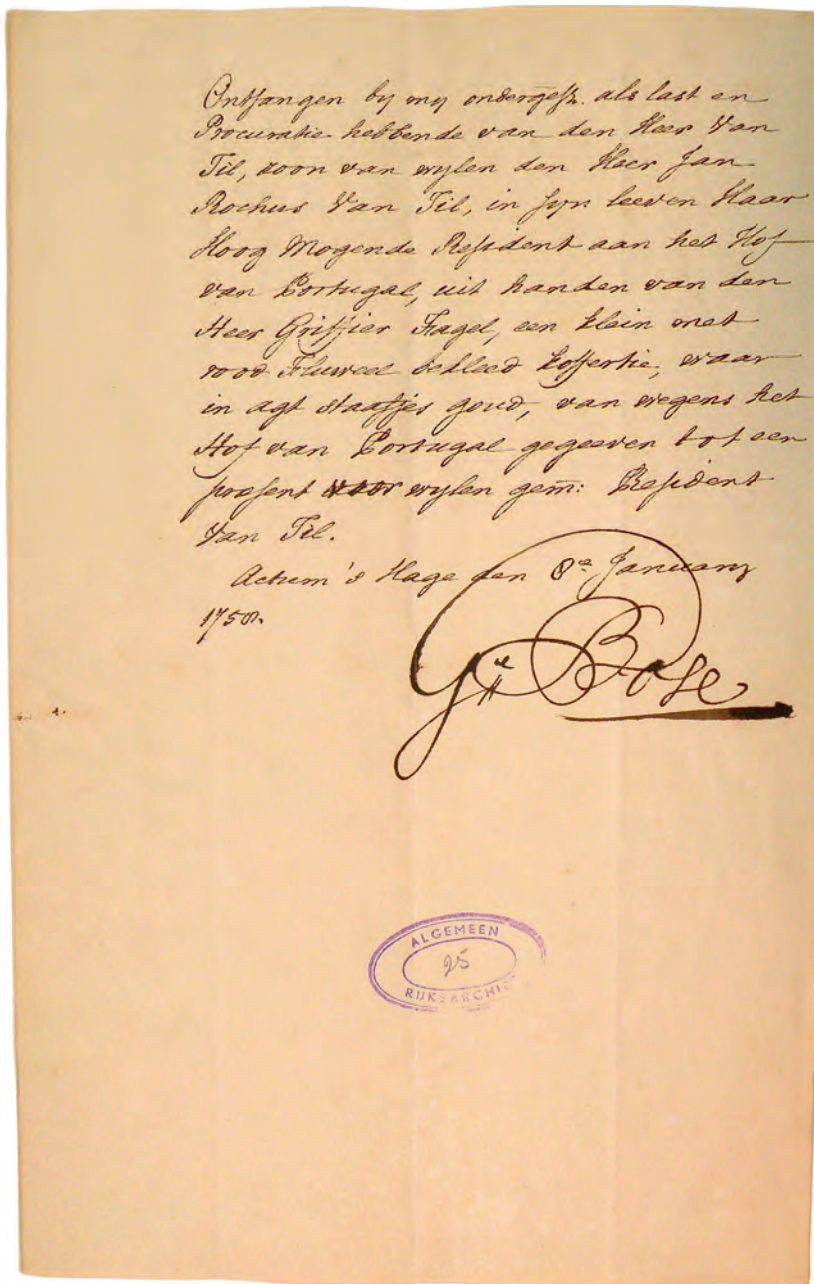 Ontfangen by my ondergesz. als last en
Procuratie hebbende van den Heer Van
Til, zoon van wylen den Heer Jan
Rochus Van Til, in syn leeven Haar
Hoog Mogende Resident aan het Hof
van Portugal, uit handen van den
Heer Griffier Fagel, een klein met
rood Fluweel bekleed koffertie, waar
in agt staafjes goud, van wegens het
Hof van Portugal gegeeven tot een
present voor wylen gem: Resident
Van Til.
Actum 's Hage den 8e January
175
Bosc
ALGEMEEN
25
RIJKSARCHI